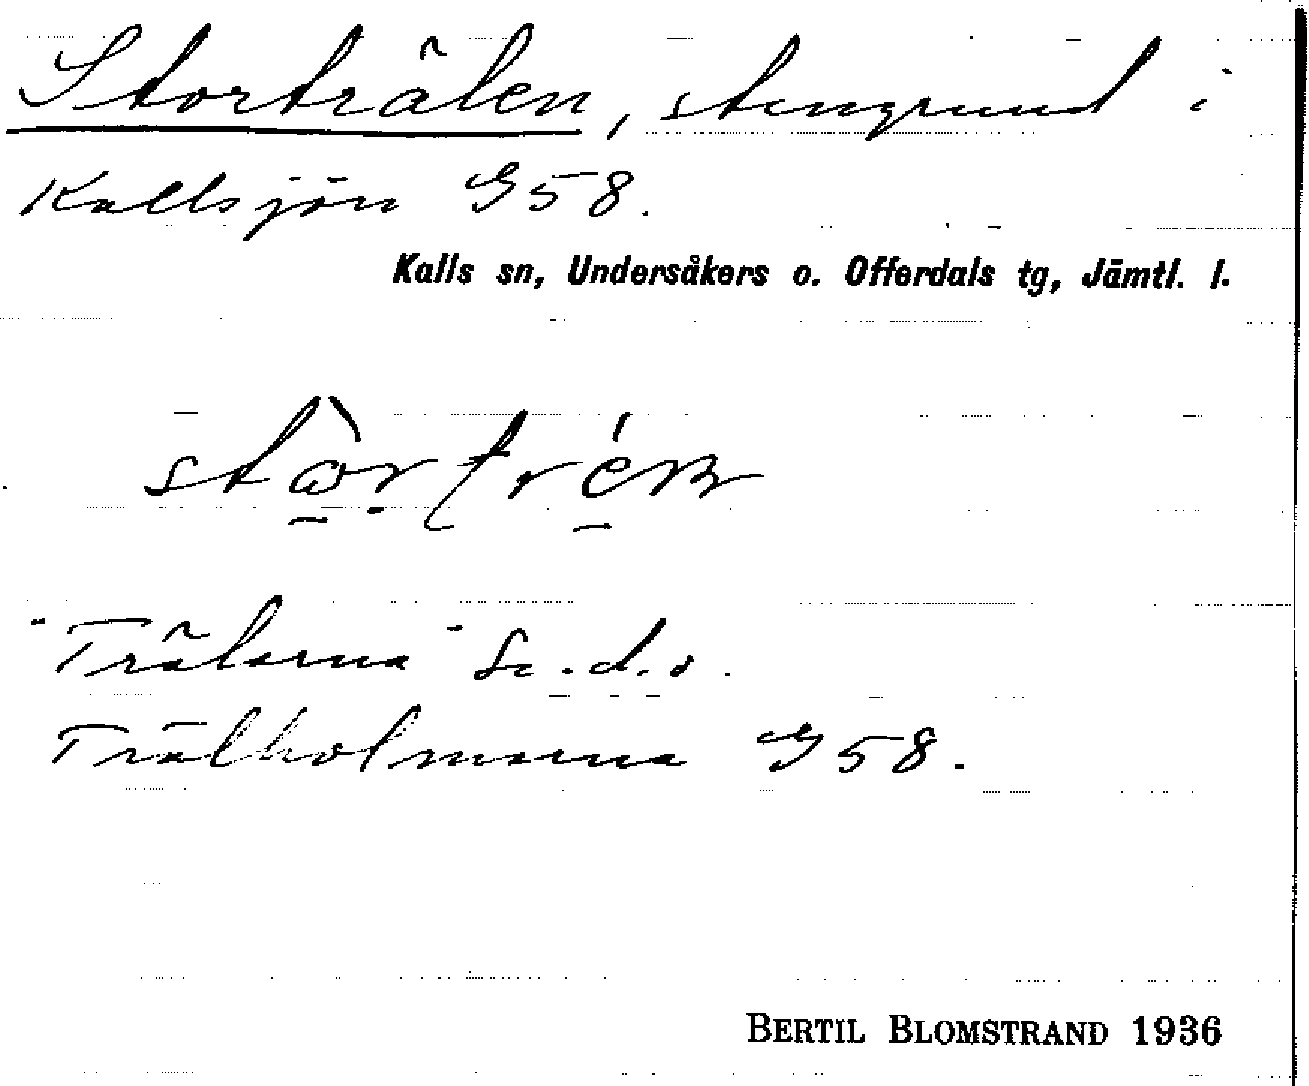 Storträlen, stengrund i
Kallsjön G58.
Kalls sn, Undersåkers o. Offerdals tg, Jämtl. l.
"Trälarna" Se. d. o.
Trälholmarna G58.
BERTIL BLOMSTRAND 1936